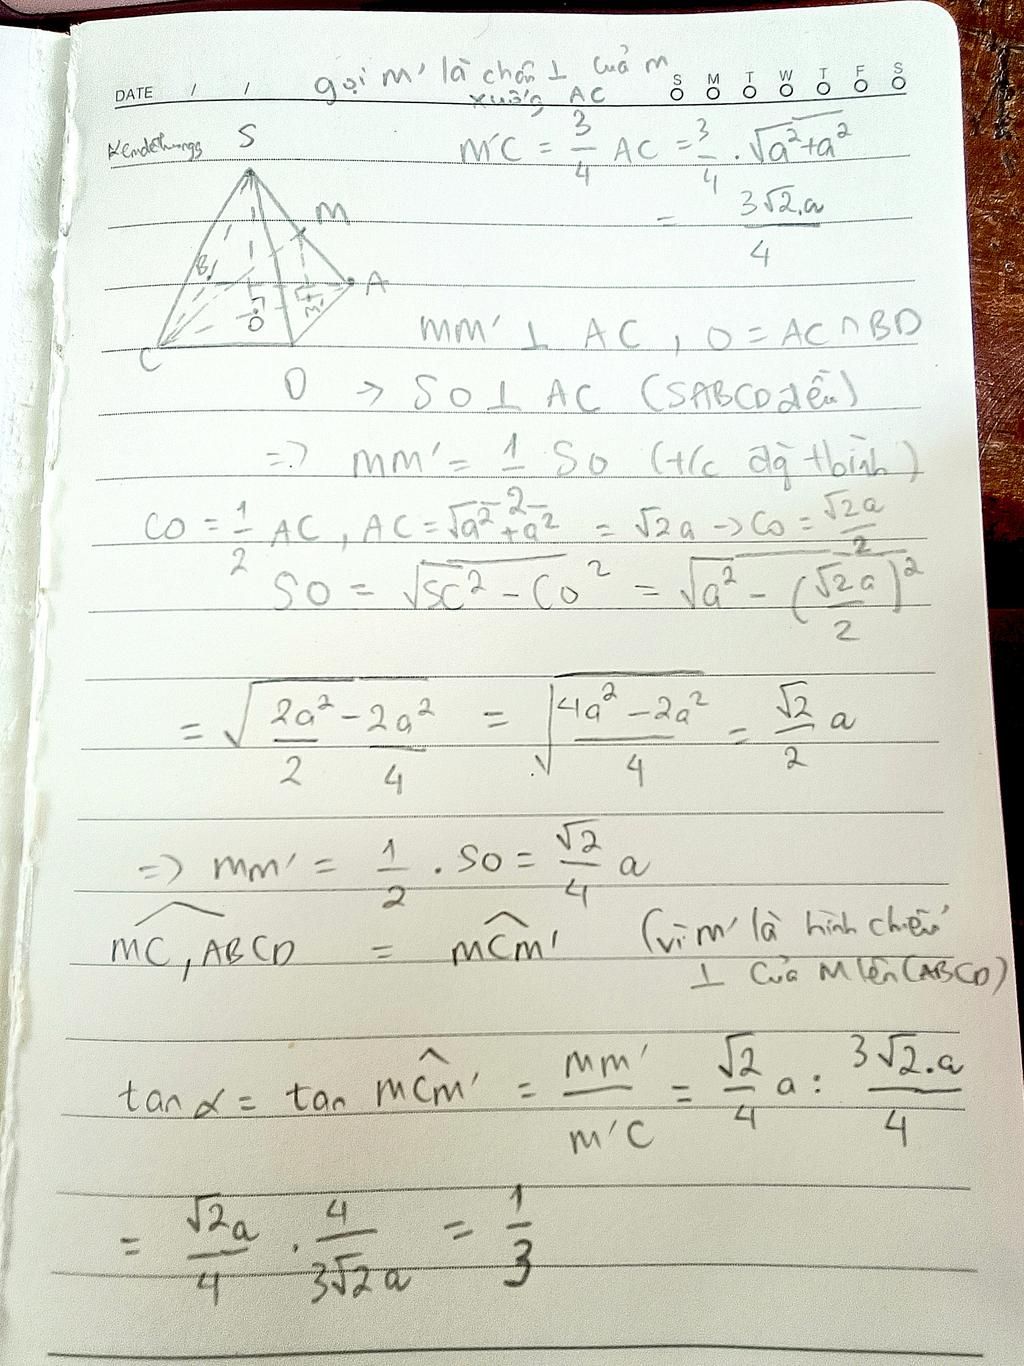 DATE / / gọi m' là chân ⊥ của m
xuống AC
S M T W T F S
S
M
B
A
M'
O
C
D
m'C = 3/4 AC = 3/4 . √(a²+a²)
= 3√2.a/4
mm' ⊥ AC , O = AC ∩ BD
→ SO ⊥ AC (SABCD đều)
=> mm' = 1/2 SO (t/c đg tbình)
CO = 1/2 AC, AC = √(a²+a²) = √2a → CO = √2a/2
SO = √(SC² - CO²) = √(a² - (√2a/2)²)
= √(2a²/2 - 2a²/4) = √((4a² - 2a²)/4) = √2/2 a
=> mm' = 1/2 . SO = √2/4 a
MC, ABCD = mCm' (vì m' là hình chiếu
⊥ của M lên (ABCD)
tan α = tan mCm' = mm'/m'C = √2/4 a : 3√2.a/4
= √2a/4 . 4/3√2a = 1/3